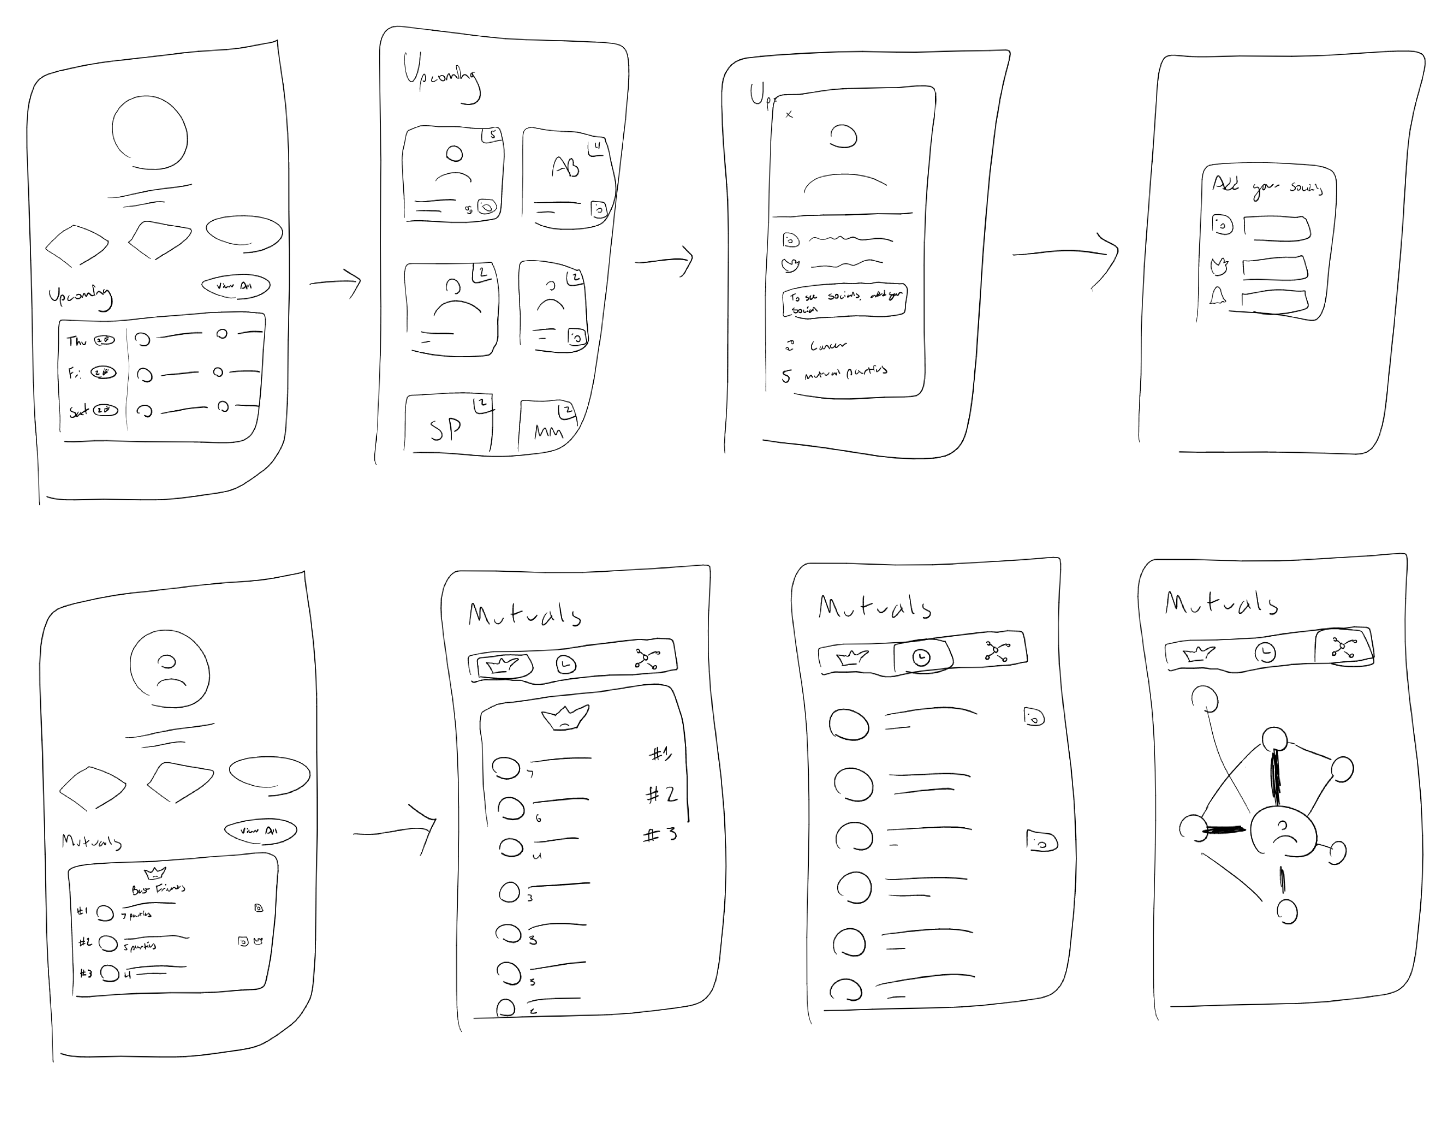 Upcoming
View All
Thu
Fri
Sat
Upcoming
5
AB
4
2
2
SP
2
MM
2
Up
x
To see socials, add your
socials
Cancer
5 mutual parties
Add your socials
Mutuals
View All
Best Friends
#1
7 parties
#2
5 parties
#3
4
Mutuals
#1
7
#2
6
#3
4
3
3
3
2
Mutuals
Mutuals